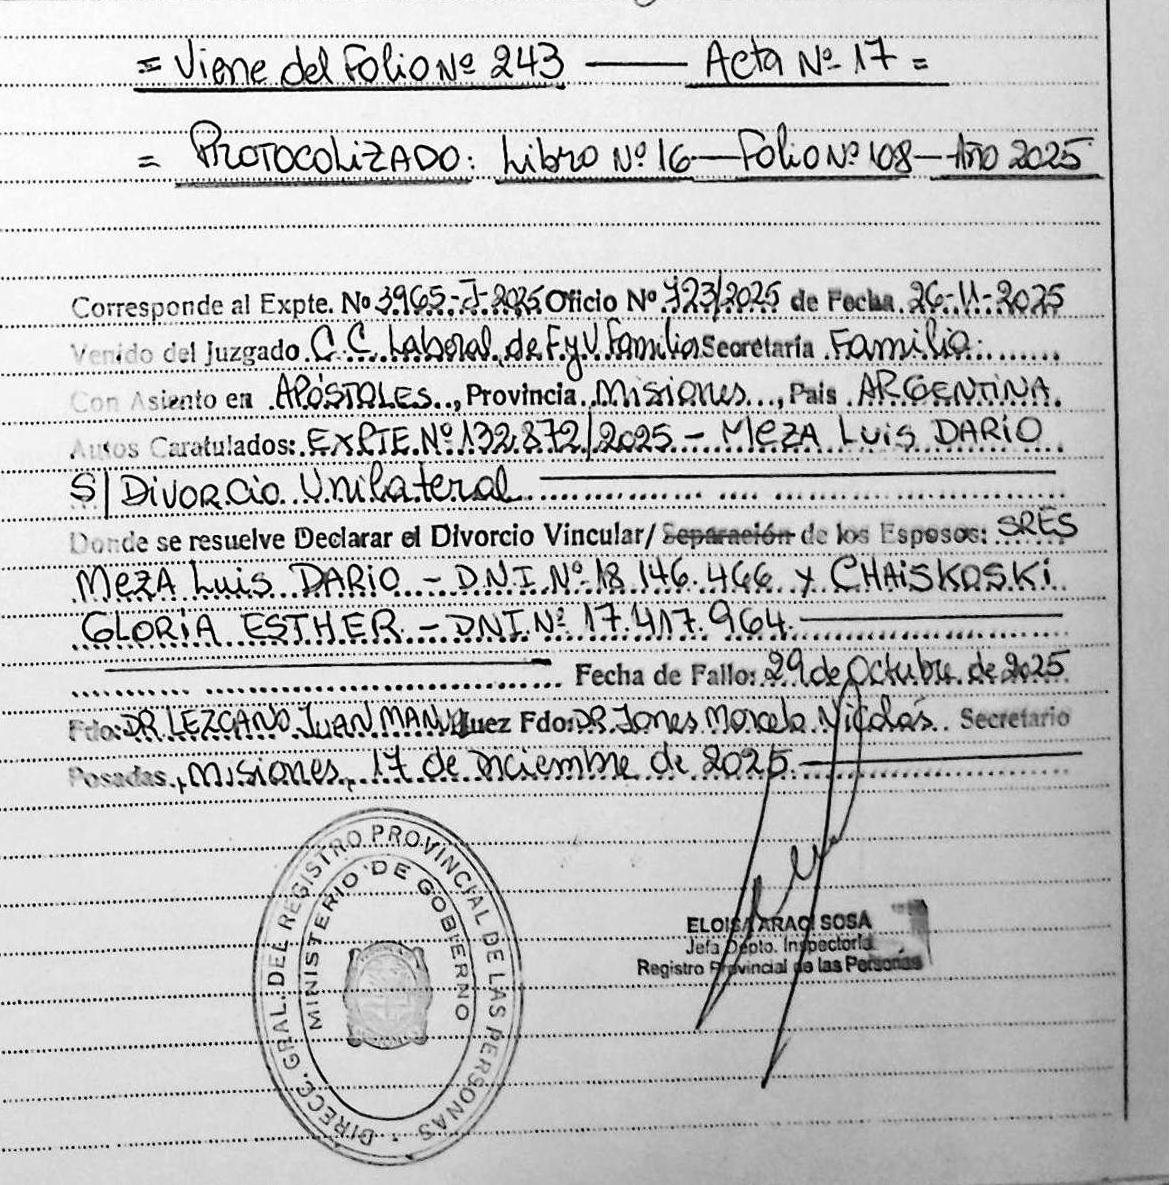 = Viene del Folio Nº 243 —— Acta Nº 17 =
= PROTOCOLIZADO: Libro Nº 16 — Folio Nº 108 — Año 2025
Corresponde al Expte. Nº 3965-J-2025 Oficio Nº 723/2025 de Fecha 26-11-2025
Venido del Juzgado C.C. Laboral de F. y V. Familia Secretaría Familia
Con Asiento en APÓSTOLES, Provincia Misiones, Pais ARGENTINA.
Autos Caratulados: EXPTE. Nº 132.872/2025 - MEZA Luis DARIO
S/ Divorcio Unilateral
Donde se resuelve Declarar el Divorcio Vincular/ Separación de los Esposos: SRES
MEZA Luis DARIO - D.N.I. Nº 18.146.466 y CHAISKOSKI
GLORIA ESTHER - DNI. Nº 17.417.964
Fecha de Fallo: 29 de Octubre de 2025
Fdo: DR LEZCANO Juan MANU Juez Fdo: DR. Jones Marcelo Nicolás Secretario
Posadas, Misiones, 17 de Diciembre de 2025.
DIRECC. GRAL. DEL REGISTRO PROVINCIAL DE LAS PERSONAS
MINISTERIO DE GOBIERNO
ELOISA ARAQ SOSA
Jefa Depto. Inspectoría
Registro Provincial de las Personas